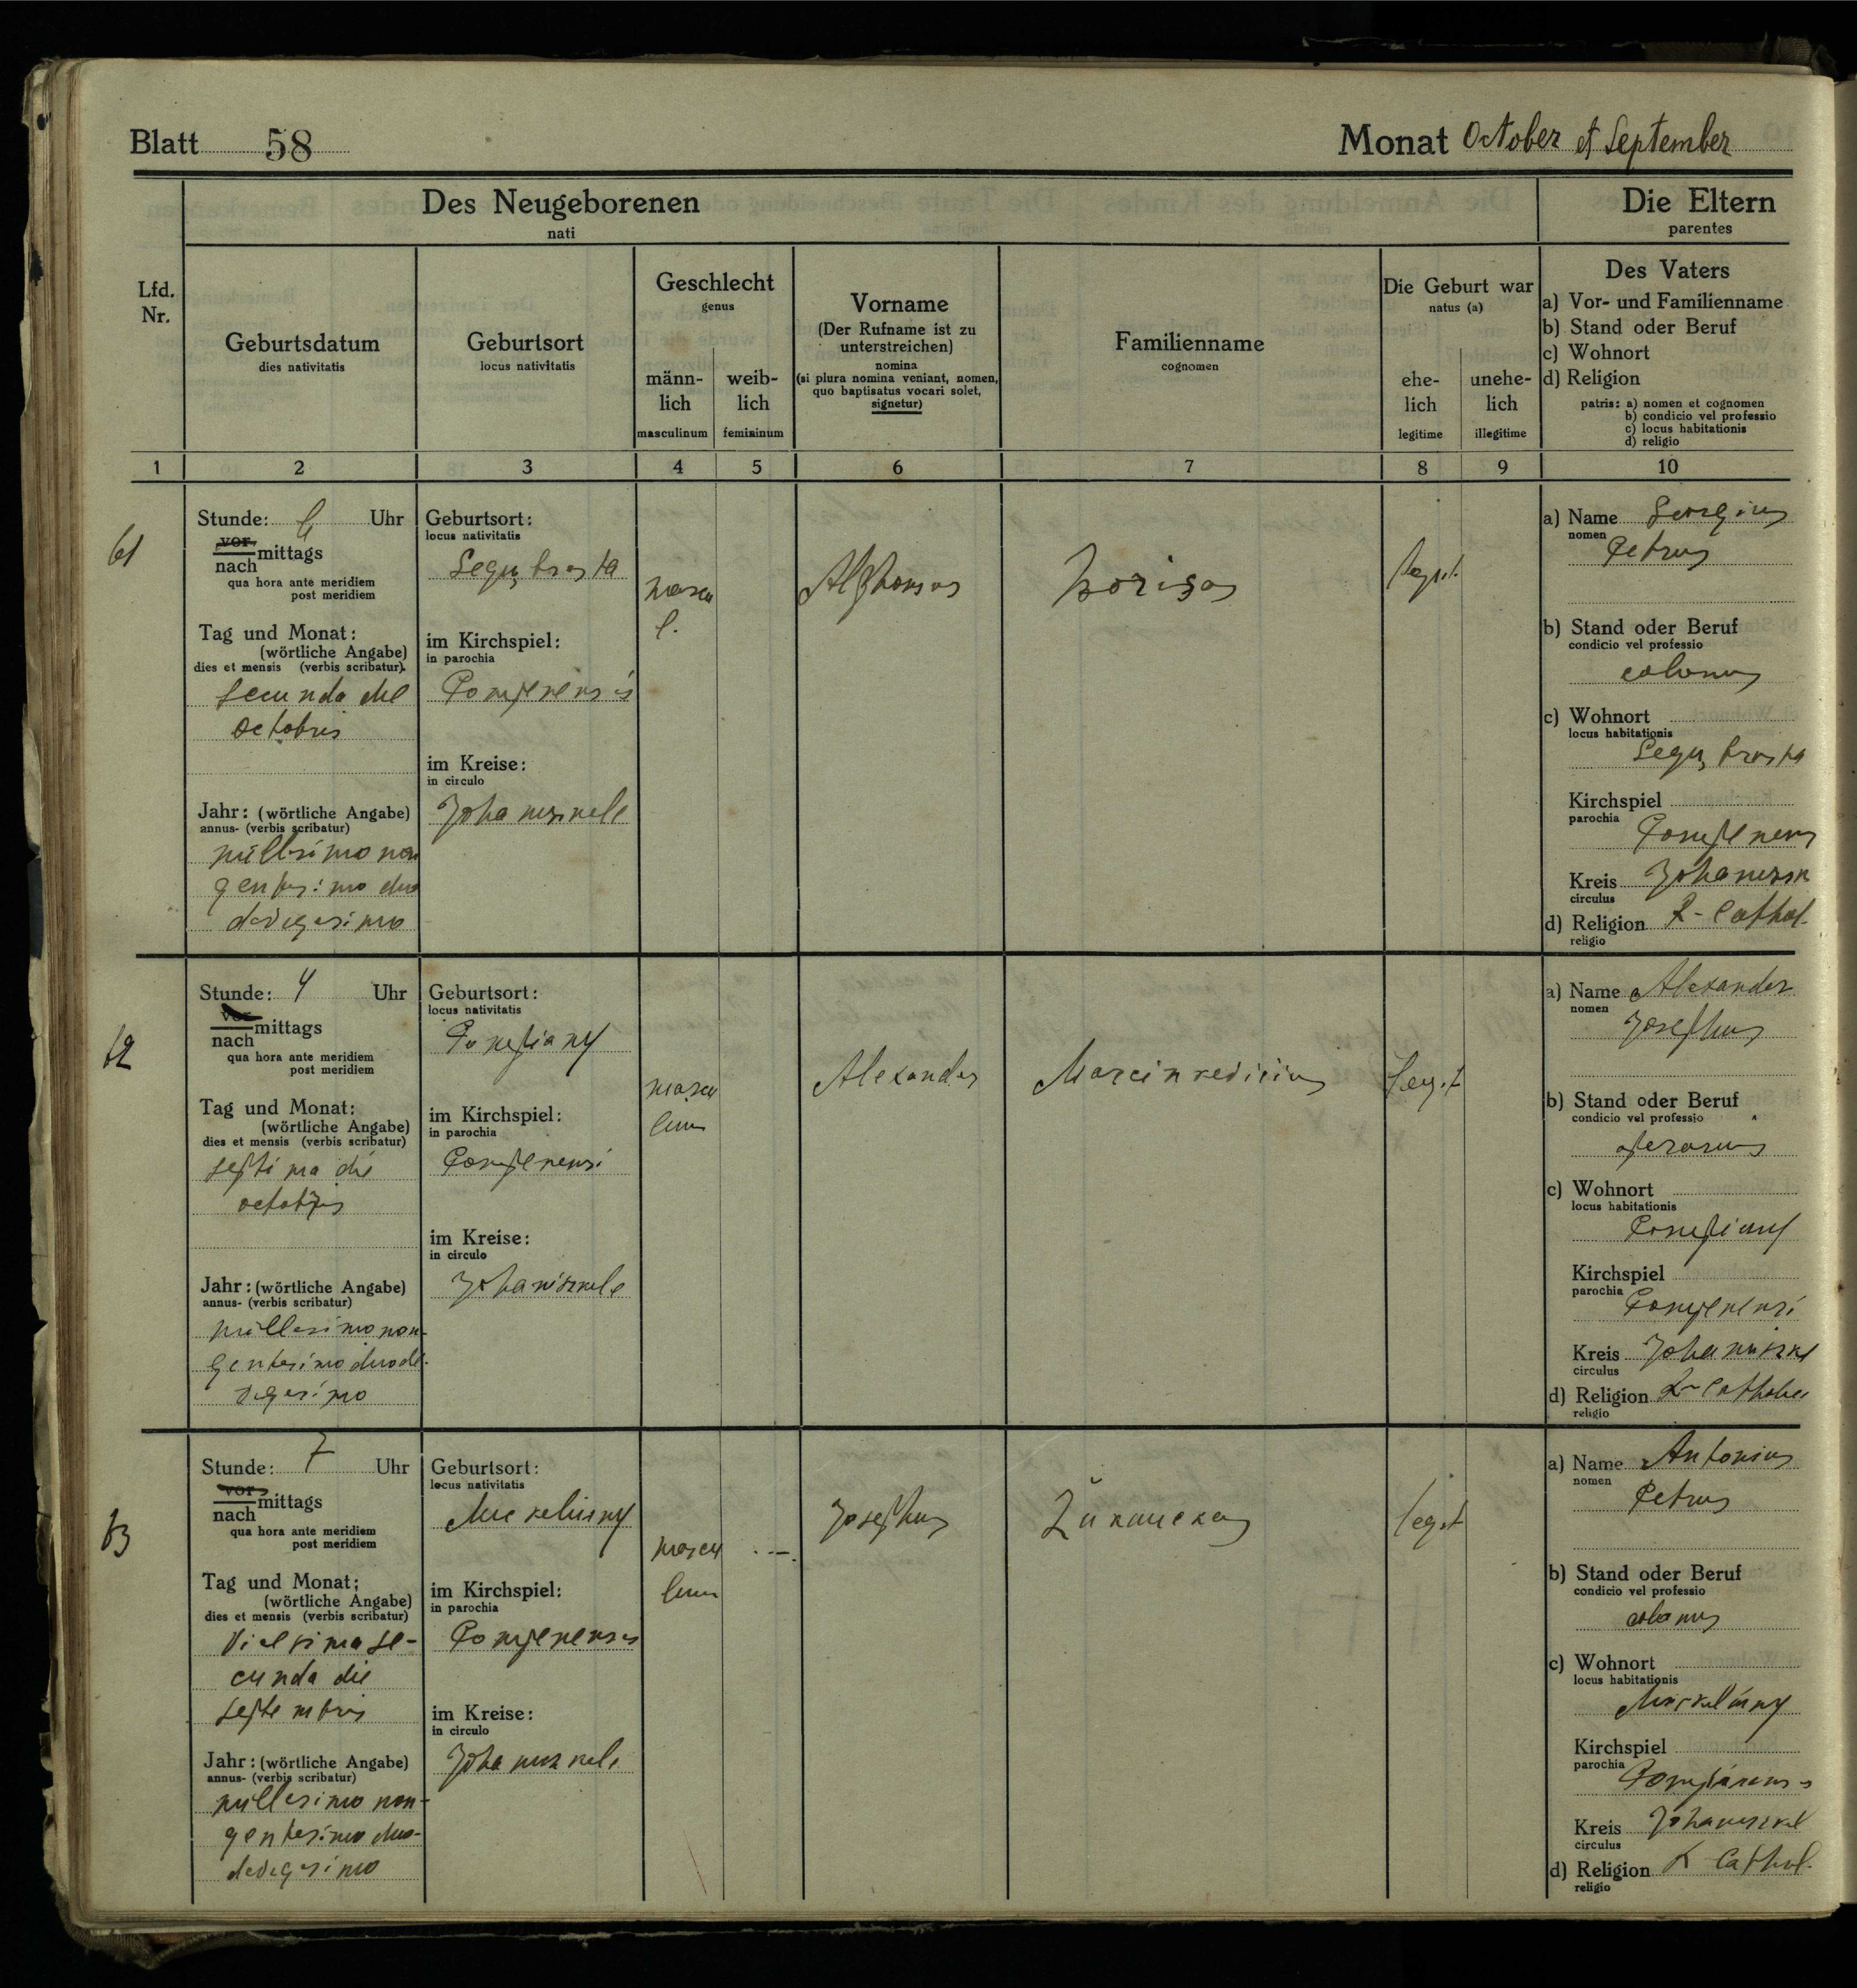 Blatt 58
Monat October et September
Des Neugeborenen
nati
Die Eltern
parentes
Lfd.
Nr.
Geburtsdatum
dies nativitatis
Geburtsort
locus nativitatis
Geschlecht
genus
männ-
lich
masculinum
weib-
lich
femininum
Vorname
(Der Rufname ist zu
unterstreichen)
nomina
(si plura nomina veniant, nomen,
quo baptisatus vocari solet,
signetur)
Familienname
cognomen
Die Geburt war
natus (a)
ehe-
lich
legitime
unehe-
lich
illegitime
Des Vaters
a) Vor- und Familienname
b) Stand oder Beruf
c) Wohnort
d) Religion
patris: a) nomen et cognomen
b) condicio vel professio
c) locus habitationis
d) religio
1 2 3 4 5 6 7 8 9 10
61
Stunde: Uhr
vor
mittags
nach
qua hora ante meridiem
post meridiem
Tag und Monat:
(wörtliche Angabe)
dies et mensis (verbis scribatur).
secunda die
octobris
Jahr: (wörtliche Angabe)
annus- (verbis scribatur)
millesimo non
gentesimo duo
devigesimo
Geburtsort:
locus nativitatis
im Kirchspiel:
in parochia
im Kreise:
in circulo
Johaniszkele
mascu
l.
Alphonsas
legit.
a) Name Georgius
nomen
Petrus
b) Stand oder Beruf
condicio vel professio
colonus
c) Wohnort
locus habitationis
Kirchspiel
parochia
Kreis
circulus
d) Religion R-Cathol.
religio
62
Stunde: 4 Uhr
vor
mittags
nach
qua hora ante meridiem
post meridiem
Tag und Monat:
(wörtliche Angabe)
dies et mensis (verbis scribatur)
septima die
octobris
Jahr: (wörtliche Angabe)
annus- (verbis scribatur)
millesimo non-
gentesimo duode-
vigesimo
Geburtsort:
locus nativitatis
im Kirchspiel:
in parochia
im Kreise:
in circulo
Johaniszkele
mascu
linum
Alexander
legit
a) Name Alexander
nomen
Josephus
b) Stand oder Beruf
condicio vel professio
c) Wohnort
locus habitationis
Kirchspiel
parochia
Kreis
circulus
d) Religion
religio
63
Stunde: 7 Uhr
vor
mittags
nach
qua hora ante meridiem
post meridiem
Tag und Monat:
(wörtliche Angabe)
dies et mensis (verbis scribatur)
vicesima se-
cunda die
septembris
Jahr: (wörtliche Angabe)
annus- (verbis scribatur)
millesimo non-
gentesimo duo-
devigesimo
Geburtsort:
locus nativitatis
im Kirchspiel:
in parochia
im Kreise:
in circulo
Johaniszkele
mascu
linum
Josephus
legit
a) Name Antonius
nomen
Petrus
b) Stand oder Beruf
condicio vel professio
colonus
c) Wohnort
locus habitationis
Kirchspiel
parochia
Kreis
circulus
d) Religion R Cathol.
religio